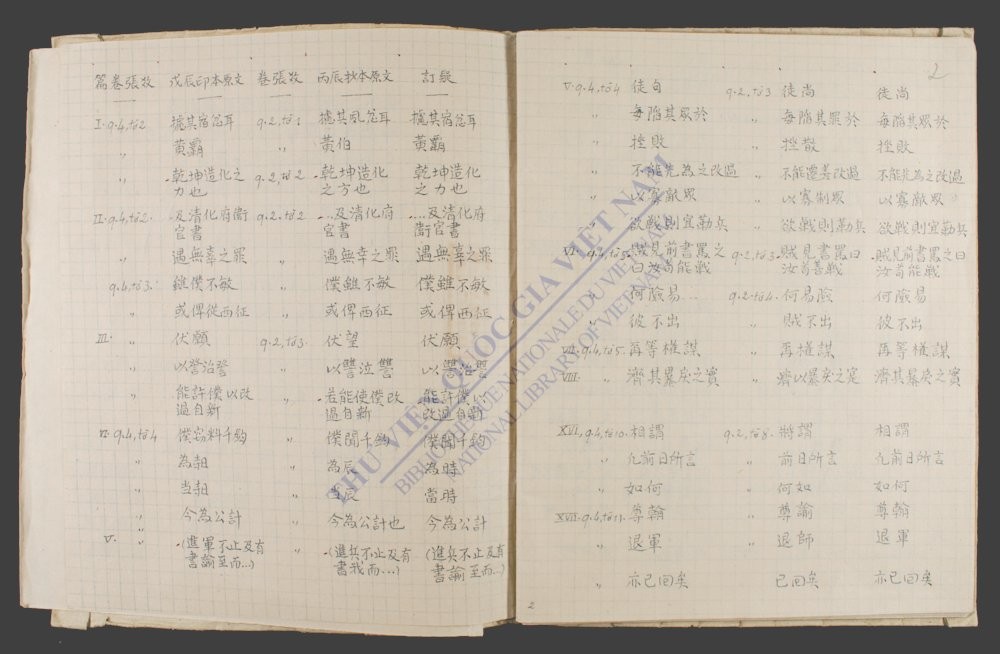 篇卷張枚 戊辰印本原文 卷張枚 丙辰抄本原文 訂疑
I. q.4, tờ2 攄其宿忿耳 q.2, tờ1 攄其夙忿耳 攄其宿忿耳
〃 黃霸 黃伯 黃霸
〃 -乾坤造化之 q.2, tờ2 -乾坤造化 乾坤造化
力也 之方也 之力也
II. q.4, tờ2. -及清化府衛 q.2, tờ2 -...及清化府 ....及清化府
官書 官書 衛官書
〃 遇無辜之罪 〃 遇無辜之罪 遇無辜之罪
q.4, tờ3. 雖僕不敏 〃 僕雖不敏 僕雖不敏
〃 或俾從西征 〃 或俾西征 或俾西征
III. 〃 伏願 q.2, tờ3. 伏望 伏願
〃 以 〃 以 以
〃 能許僕以改 〃 -若能使僕改 能許僕以
過自新 過自新 改過自新
IV. q.4, tờ4 僕 料千鈞 〃 僕聞千鈞 僕聞千鈞
〃 為 〃 為辰 為時
〃 當 〃 當辰 當時
〃 今為公計 〃 今為公計也 今為公計
V. 〃 -(進軍不止及有 〃 -(進兵不止及有 (進兵不止及有
書諭至而...) 書我而...) 書諭至而...)
2
V. q.4, tờ4 徒 q.2, tờ3 徒尚 徒尚
〃 每陷其眾於 〃 每陷其罪於 每陷其眾於
〃 挫敗 〃 挫散 挫敗
〃 不能 為之改過 〃 不能遷善改過 不能 為之改過
〃 以寡敵眾 〃 以寡制眾 以寡敵眾
〃 欲戰則宜勒兵 〃 欲戰則勒兵 欲戰則宜勒兵
VI. q.4, tờ5. 賊見前書罵之 q.2, tờ3. 賊見書罵曰 賊見前書罵之曰
曰汝 能戰 汝 善戰 汝 能戰
〃 何險易... q.2, tờ4. 何易險 何險易
〃 彼不出 〃 賊不出 彼不出
VII. q.4, tờ5. 再等權謀 〃 再權謀 再等權謀
VIII. 〃 濟其暴戾之實 〃 濟以暴戾之寔 濟其暴戾之實
XVI. q.4, tờ10. 相謂 q.2, tờ8. 將謂 相謂
〃 凡前日所言 〃 前日所言 凡前日所言
〃 如何 〃 何如 如何
XVII. q.4, tờ11. 尊翰 〃 尊諭 尊翰
〃 退軍 〃 退師 退軍
〃 亦已回矣 已回矣 亦已回矣
2
THƯ VIỆN QUỐC GIA VIỆT NAM
BIBLIOTHEQUE NATIONALE DU VIETNAM
NATIONAL LIBRARY OF VIETNAM